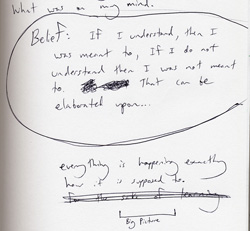 What was on my mind.
Belief: If I understand, then I
was meant to, If I do not
understand then I was not meant
to. That can be
elaborated upon...
everything is happening exactly
how it is supposed to.
for the sake of learning
Big Picture